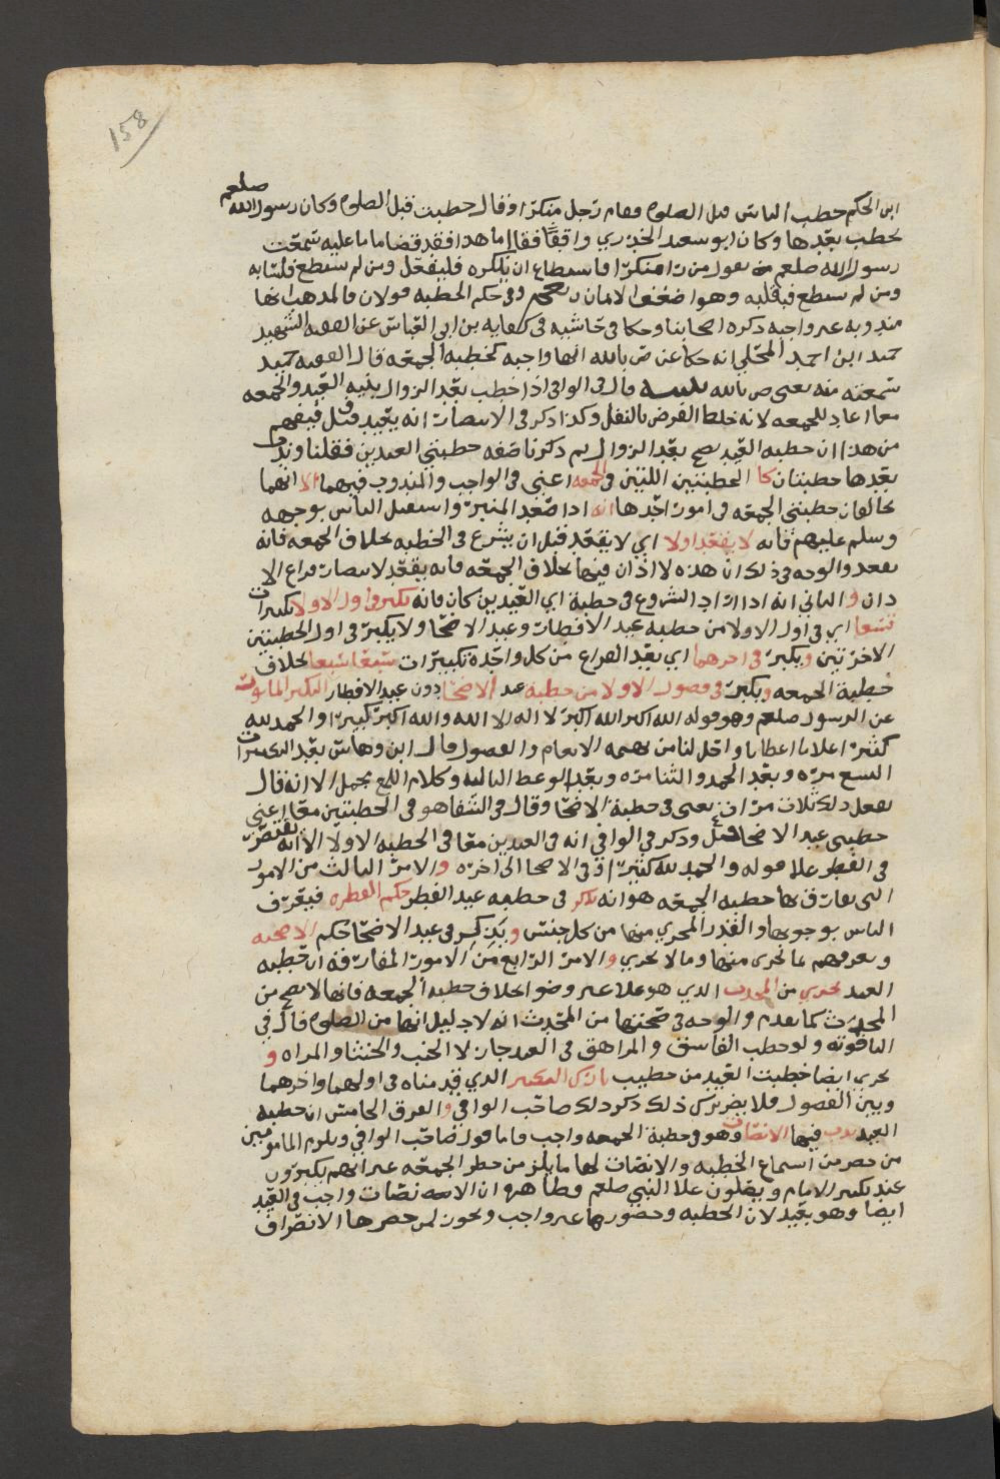 158
ابن الحكم خطب الناس قبل الصلوه فقام رجل منكرا وقال خطبت قبل الصلوه وكان رسول الله صلعم
يخطب بعدها وكان ابو سعيد الخدري واقفا فقال اما هذا فقد قضا ما عليه سمعت
رسول الله صلعم يقول من رأا منكرا فاستطاع ان ينكره فليفعل ومن لم يستطع فلسانه
ومن لم يستطع فبقلبه وهو اضعف الامان وفي حكم الخطبه قولان فالمذهب انها
مندوبه غير واجبه ذكره اصحابنا وحكا في حاشيه في كفايه بن ابي العباس عن الفقيه الشهيد
حميد ابن احمد المحلي انه حكا عن ص بالله انها واجبه كخطبه الجمعه قال الفقيه حميد
سمعته منه يعني ص بالله قال في الوافي اذا خطب بعد الزوال بنيه العيد والجمعه
معا اعاد للجمعه لانه خلط الفرض بالنفل وكذا ذكر في الانتصار انه يعيد قيل فيفهم
من هذا ان خطبه العيد تصح بعد الزوال ثم ذكرنا صفه خطبتي العيدين فقلنا وندب
بعدها خطبتان كا الخطبتين اللتين في الجمعه اعني في الواجب والمندوب فيهما الا انهما
يخالفان خطبتي الجمعه في امور احدها انه اذا صعد المنبر واستقبل الناس بوجهه
وسلم عليهم فانه لا يقعد اولا اي لا يقعد قبل ان يشرع في الخطبه بخلاف الجمعه فانه
يقعد والوجه في ذلك ان هذه لا اذان فيها بخلاف الجمعه فانه يقعد لانتصار فراغ الا
ذان والثاني انه اذا اراد الشروع في خطبة اي العيدين كان فانه يكبر في اول الاولا تكبيرات
تسعا اي في اول الاولا من خطبه عيد الافطار وعيد الاضحا ولا يكبر في اول الخطبتين
الاخرتين ويكبر في اخرهما اي بعد الفراغ من كل واحده تكبيرات سبعا سبعا بخلاف
خطبة الجمعه ويكبر في فصول الاولا من خطبة عيد الاضحا دون عيد الافطار التكبير الماثور
عن الرسول صلعم وهو قوله الله اكبر الله اكبر لا اله الا الله والله اكبر كبيرا والحمد لله
كثيرا على ما اعطانا واحل لنا من بهيمه الانعام والفصول قال ابن وهاس بعد التكبيرات
التسع مره وبعد الحمد والثنا مره وبعد الوعظ الثالثه وكلام اللمع يحمل الا انه قال
يفعل ذلك ثلاث مرات يعني في خطبة الاضحا وقال في الشفا هو في الخطبتين معا اعني
خطبتي عيد الاضحا قيل وذكر في الوافي انه في العيدين معا في الخطبه الاولا الا انه يقتصر
في الفطر علا قوله والحمد لله كثيرا وفي الاضحا الى اخره والامر الثالث من الامور
التي تفارق بها خطبه الجمعه هو انه يذكر في خطبه عيد الفطر حكم الفطره فيعرف
الناس بوجوبها والقدر المجزي منها من كل جنس ويذكر في عيد الاضحا حكم الاضحيه
ويعرفهم ما تجزي منها وما لا يجزي والامر الرابع من الامور المفارقه ان خطبه
العيد تجزي من المحدث الذي هو علا غير وضو بخلاف خطبه الجمعه فانها لا تصح من
المحدث كما تقدم والوجه في صحتها من المحدث انه لا دليل انها من الصلوه قال في
الياقوته ولو خطب الفاسق والمراهق في العيد جاز لا الجنب والخنثا والمراه و
تجزي ايضا خطبت العيد من خطيب تارك التكبير الذي قدمناه في اولهما واخرهما
وبين الفصول فلا يضر ترك ذلك ذكر ذلك صاحب الوافي والفرق الخامس ان خطبه
العيد ندب فيها الانصات وهو في خطبة الجمعه واجب واما قول صاحب الوافي ويلزم المامومين
من حضر من استماع الخطبه والانصات لها ما يلزم من حضر الجمعه غير انهم يكبرون
عند تكبير الامام ويصلون علا النبي صلعم فظاهره ان الانصات واجب في العيد
ايضا وهو بعيد لان الخطبه وحضورها غير واجب ويجوز لمن حضرها الانصراف